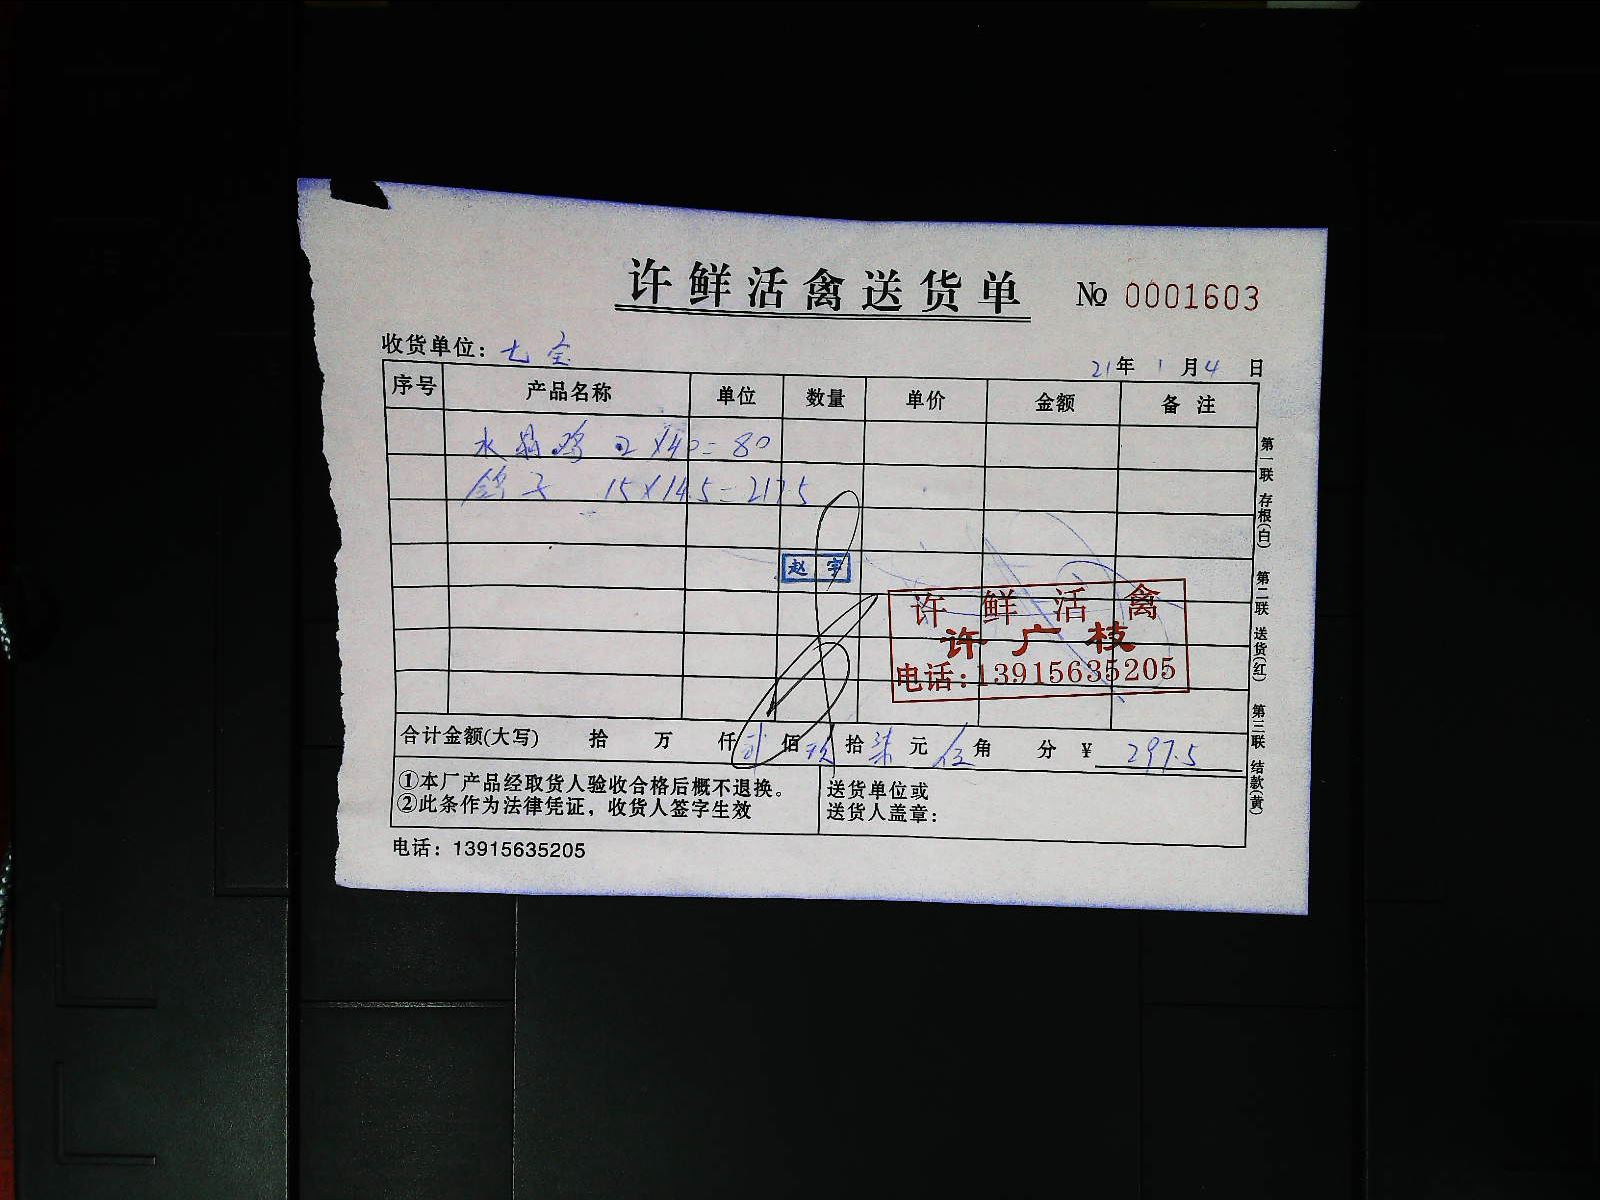 许鲜活禽送货单 No 0001603
收货单位：七宝
21年 1月4日
序号 产品名称 单位 数量 单价 金额 备注
水晶鸡 2×40=80
鸽子 15×14.5=217.5
赵宇
许鲜活禽
许广枝
电话:13915635205
合计金额(大写) 拾 万 仟 贰佰玖拾柒元伍角 分 ¥ 297.5
①本厂产品经取货人验收合格后概不退换。
②此条作为法律凭证，收货人签字生效
送货单位或
送货人盖章：
电话：13915635205
第一联 存根(白)
第二联 送货(红)
第三联 结款(黄)